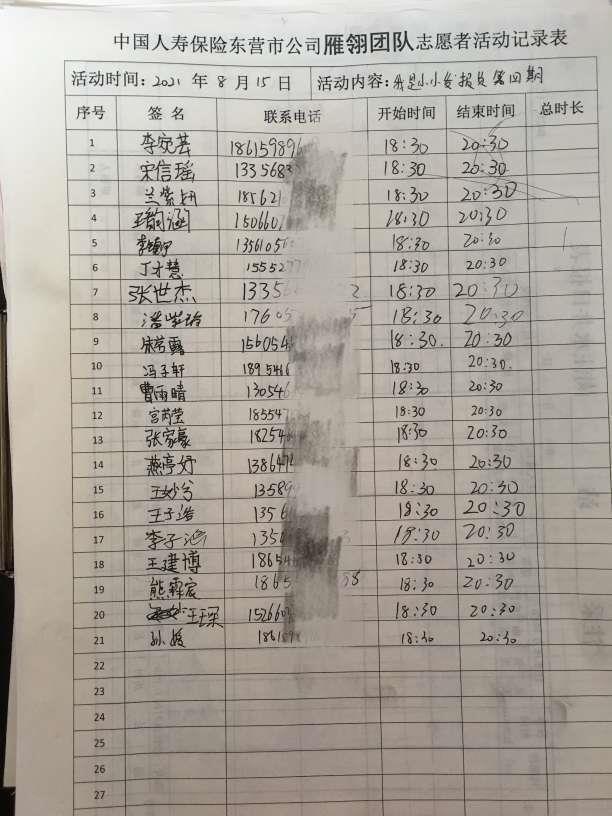 中国人寿保险东营市公司雁翎团队志愿者活动记录表
活动时间：2021 年 8 月 15 日 活动内容：我是小小发报员第四期
序号 签 名 联系电话 开始时间 结束时间 总时长
1 李宛芸 186159896 18:30 20:30
2 宋信瑶 133568 18:30 20:30
3 兰紫妍 185621 18:30 20:30
4 涵 150660 18:30 20:30
5 李 1356105 18:30 20:30
6 丁才慧 155527 18:30 20:30
7 张世杰 1335 2 18:30 20:30
8 潘 1760 18:30 20:30
9 露 156054 18:30 20:30
10 冯子轩 189546 18:30 20:30
11 曹雨晴 13054 18:30 20:30
12 宫芮莹 18554 18:30 20:30
13 张家豪 18254 18:30 20:30
14 燕亭妤 138647 18:30 20:30
15 王妙兮 13589 18:30 20:30
16 王子浩 1356 18:30 20:30
17 李子涵 1354 18:30 20:30
18 王建博 1865 18:30 20:30
19 熊霖宸 1865 58 18:30 20:30
20 王琛 152660 18:30 20:30
21 孙媛 186189 18:30 20:30
22
23
24
25
26
27